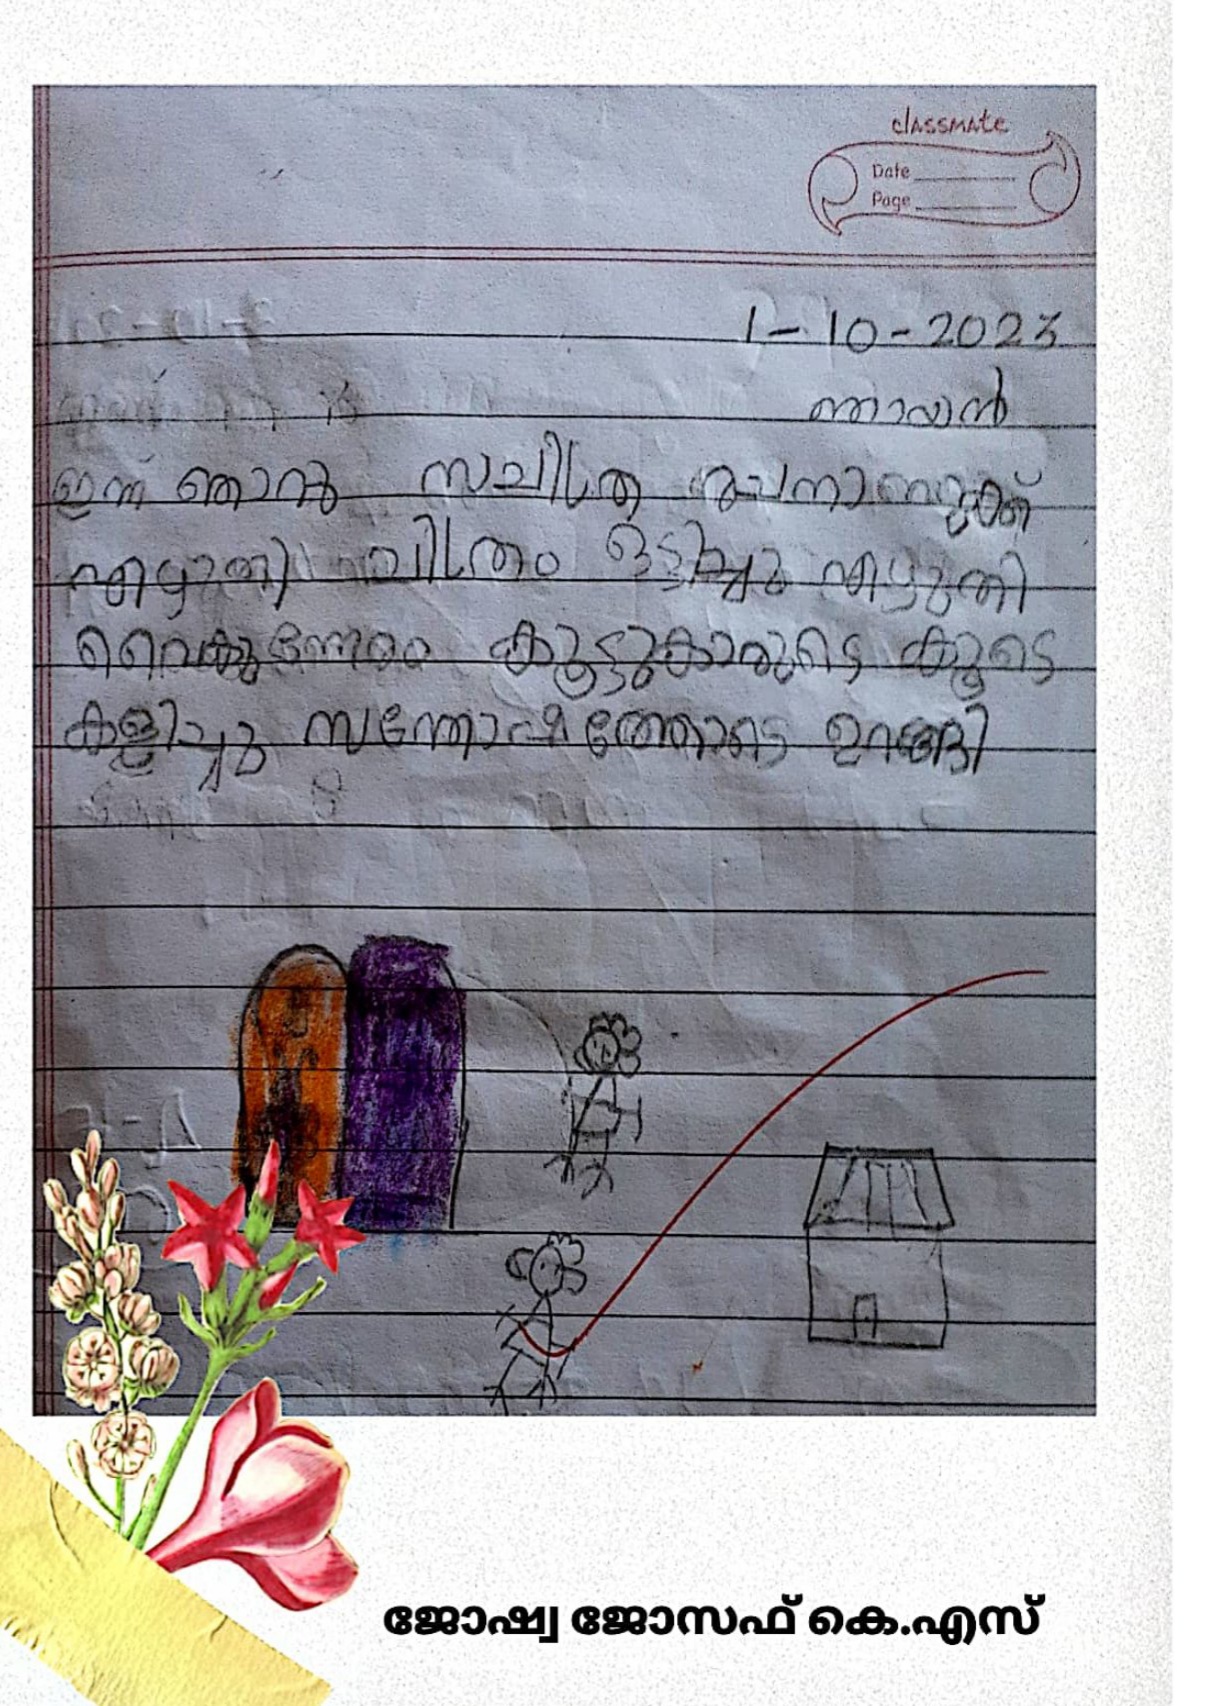 classmate
Date
Page
1-10-2023
ഞായർ
ഇന്ന് ഞാനു സചിത്ര
എഴുതി ചിത്രം ഒട്ടിച്ചു എഴുതി
വൈകുന്നേരം കൂട്ടുകാരുടെ കൂടെ
കളിച്ചു സന്തോഷത്തോടെ ഉറങ്ങി
ജോഷ്വ ജോസഫ് കെ.എസ്